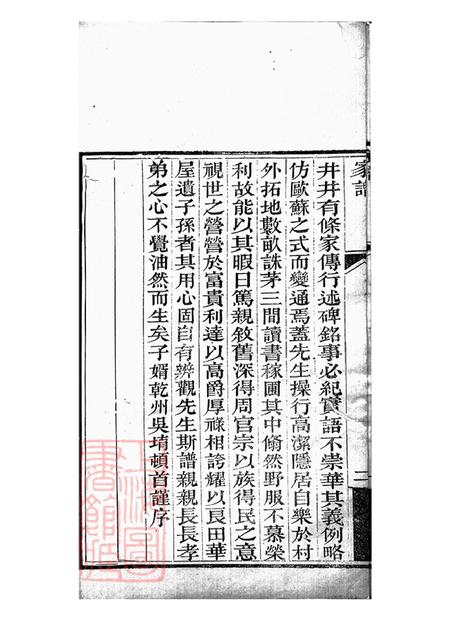 家譜
二
井井有條家傳行述碑銘事必紀實語不崇華其義例略
仿歐蘇之式而變通焉蓋先生操行高潔隱居自樂於村
外拓地數畝誅茅三間讀書稼圃其中翛然野服不慕榮
利故能以其暇日篤親敘舊深得周官宗以族得民之意
視世之營營於富貴利達以高爵厚祿相誇耀以良田華
屋遺子孫者其用心固自有辨觀先生斯譜親親長長孝
弟之心不覺油然而生矣子婿乾州吳堉頓首謹序
上海圖
書館藏